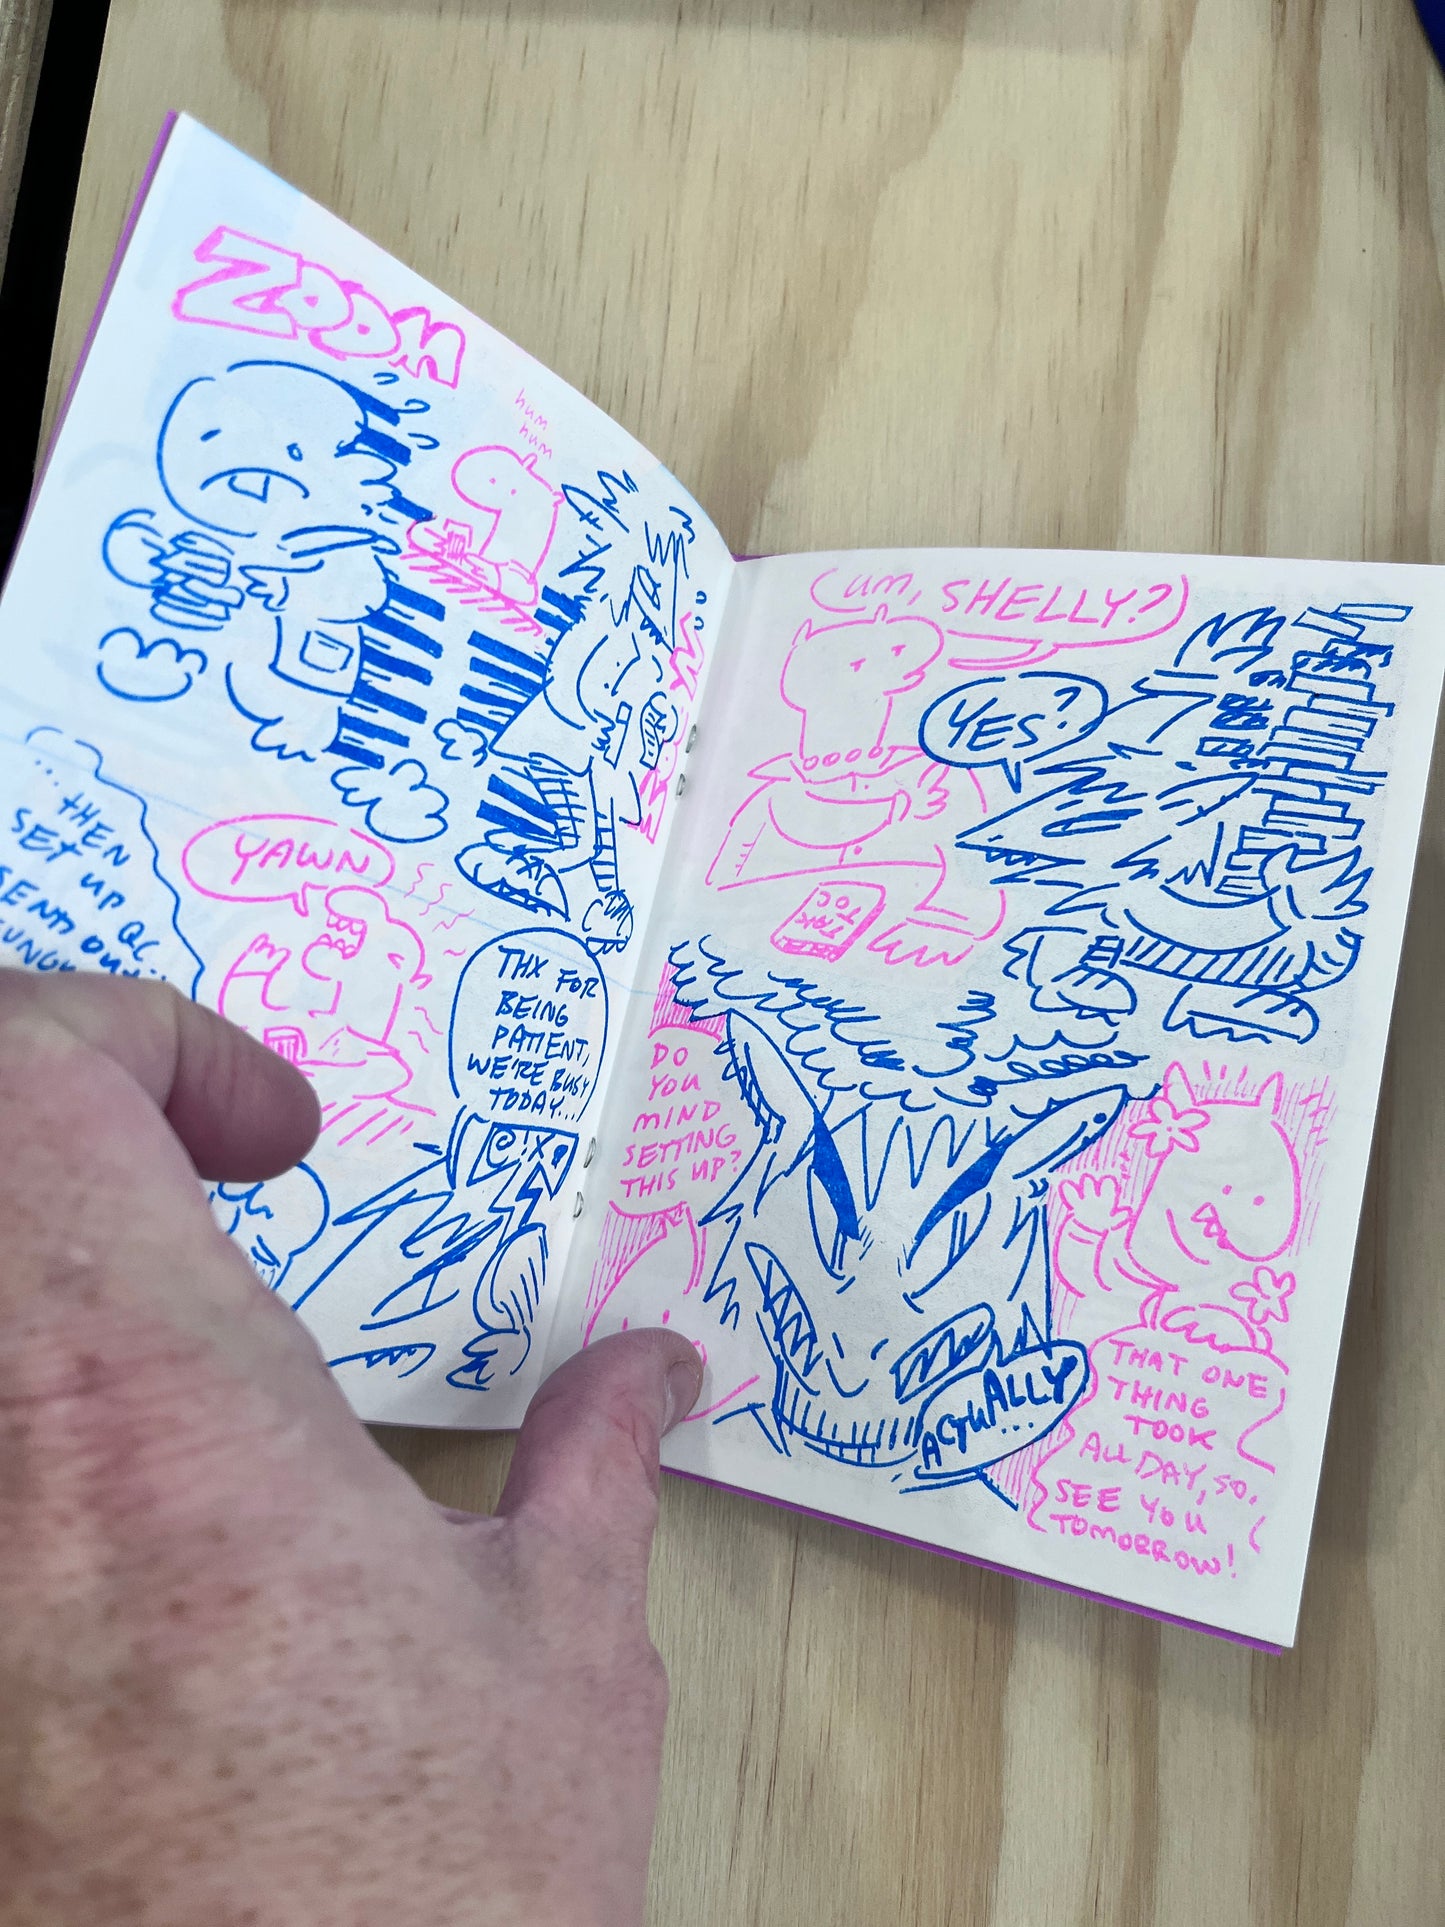 ZOOM
hum
hum
... THEN
SET UP QC
SEND OUT...
YAWN
THX FOR
BEING
PATIENT,
WE'RE BUSY
TODAY...
um, SHELLY?
YES?
TOC
DO
YOU
MIND
SETTING
THIS UP?
ACTUALLY
...
THAT ONE
THING
TOOK
ALL DAY, SO,
SEE YOU
TOMORROW!